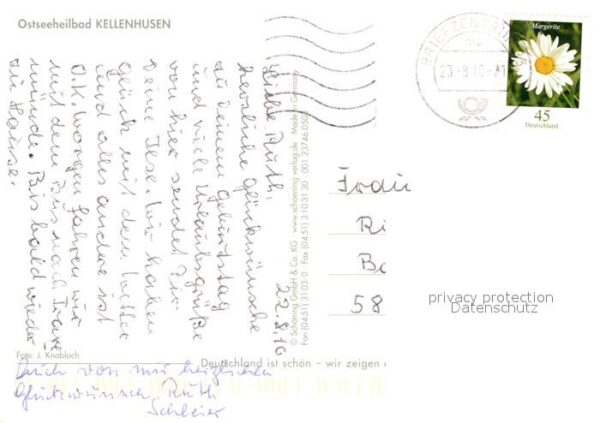 Ostseeheilbad KELLENHUSEN
22.8.10
Liebe Ruth,
herzliche Glückwünsche
zu Deinem Geburtstag
und viele Urlaubsgrüße
von hier sendet Dir
Deine Ilse. Wir haben
Glück mit dem Wetter
und alles andere ist
O.K. Morgen fahren wir
mit dem Bus nach Trave
münde. Bis bald wieder
zu Hause.
Auch von mir herzlichen
Glückwunsch Ruth
Foto: J. Knobloch
© Schöning GmbH & Co. KG · www.schoening-verlag.de · Made in Germany
Fon (0451) 31 03 0 · Fax (0451) 3 10 31 30
Deutschland ist schön – wir zeigen
BRIEFZENTRUM
23.-8.10
Margerite
45
Deutschland
Frau
Ri
Ba
58
privacy protection
Datenschutz